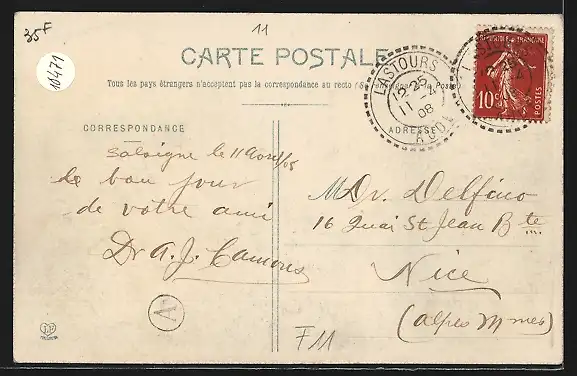 35F
11
18471
CARTE POSTALE
Tous les pays étrangers n'acceptent pas la correspondance au recto (Se renseigner à la Poste).
LASTOURS
12-25
11 -4
08
AUDE
RÉPUBLIQUE FRANÇAISE
10c
POSTES
CORRESPONDANCE
ADRESSE
Salsigne le 11 Avril/08
Le bon jour
de votre ami
Dr A. J. Camous
M Dr. Delfino
16 Quai St Jean Bte
Nice
(Alpes Mmes)
A
F11